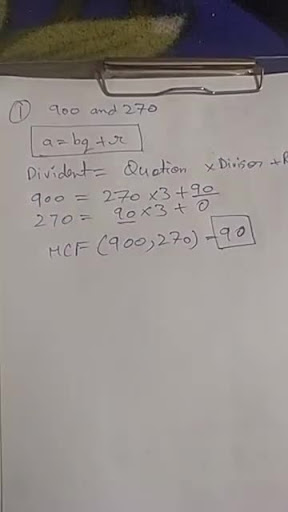 ① 900 and 270
a = bq + r
Divident = Quotion × Divisor + R
900 = 270 × 3 + 90
270 = 90 × 3 + 0
HCF (900, 270) - 90